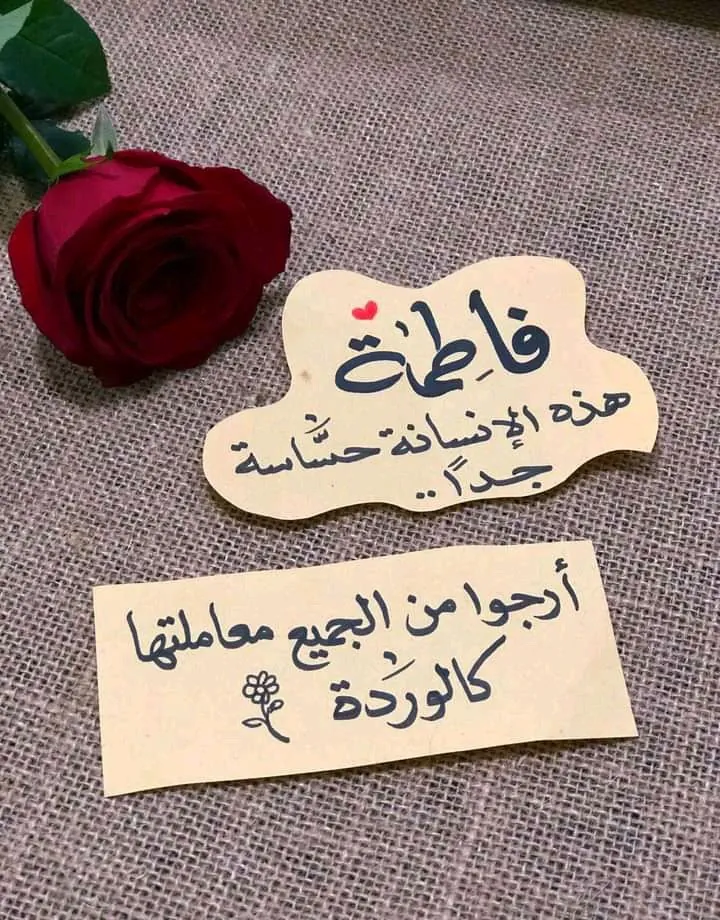 فاطمة
هذه الإنسانة حسَّاسة
جداً..
أرجوا من الجميع معاملتها
كالوردة